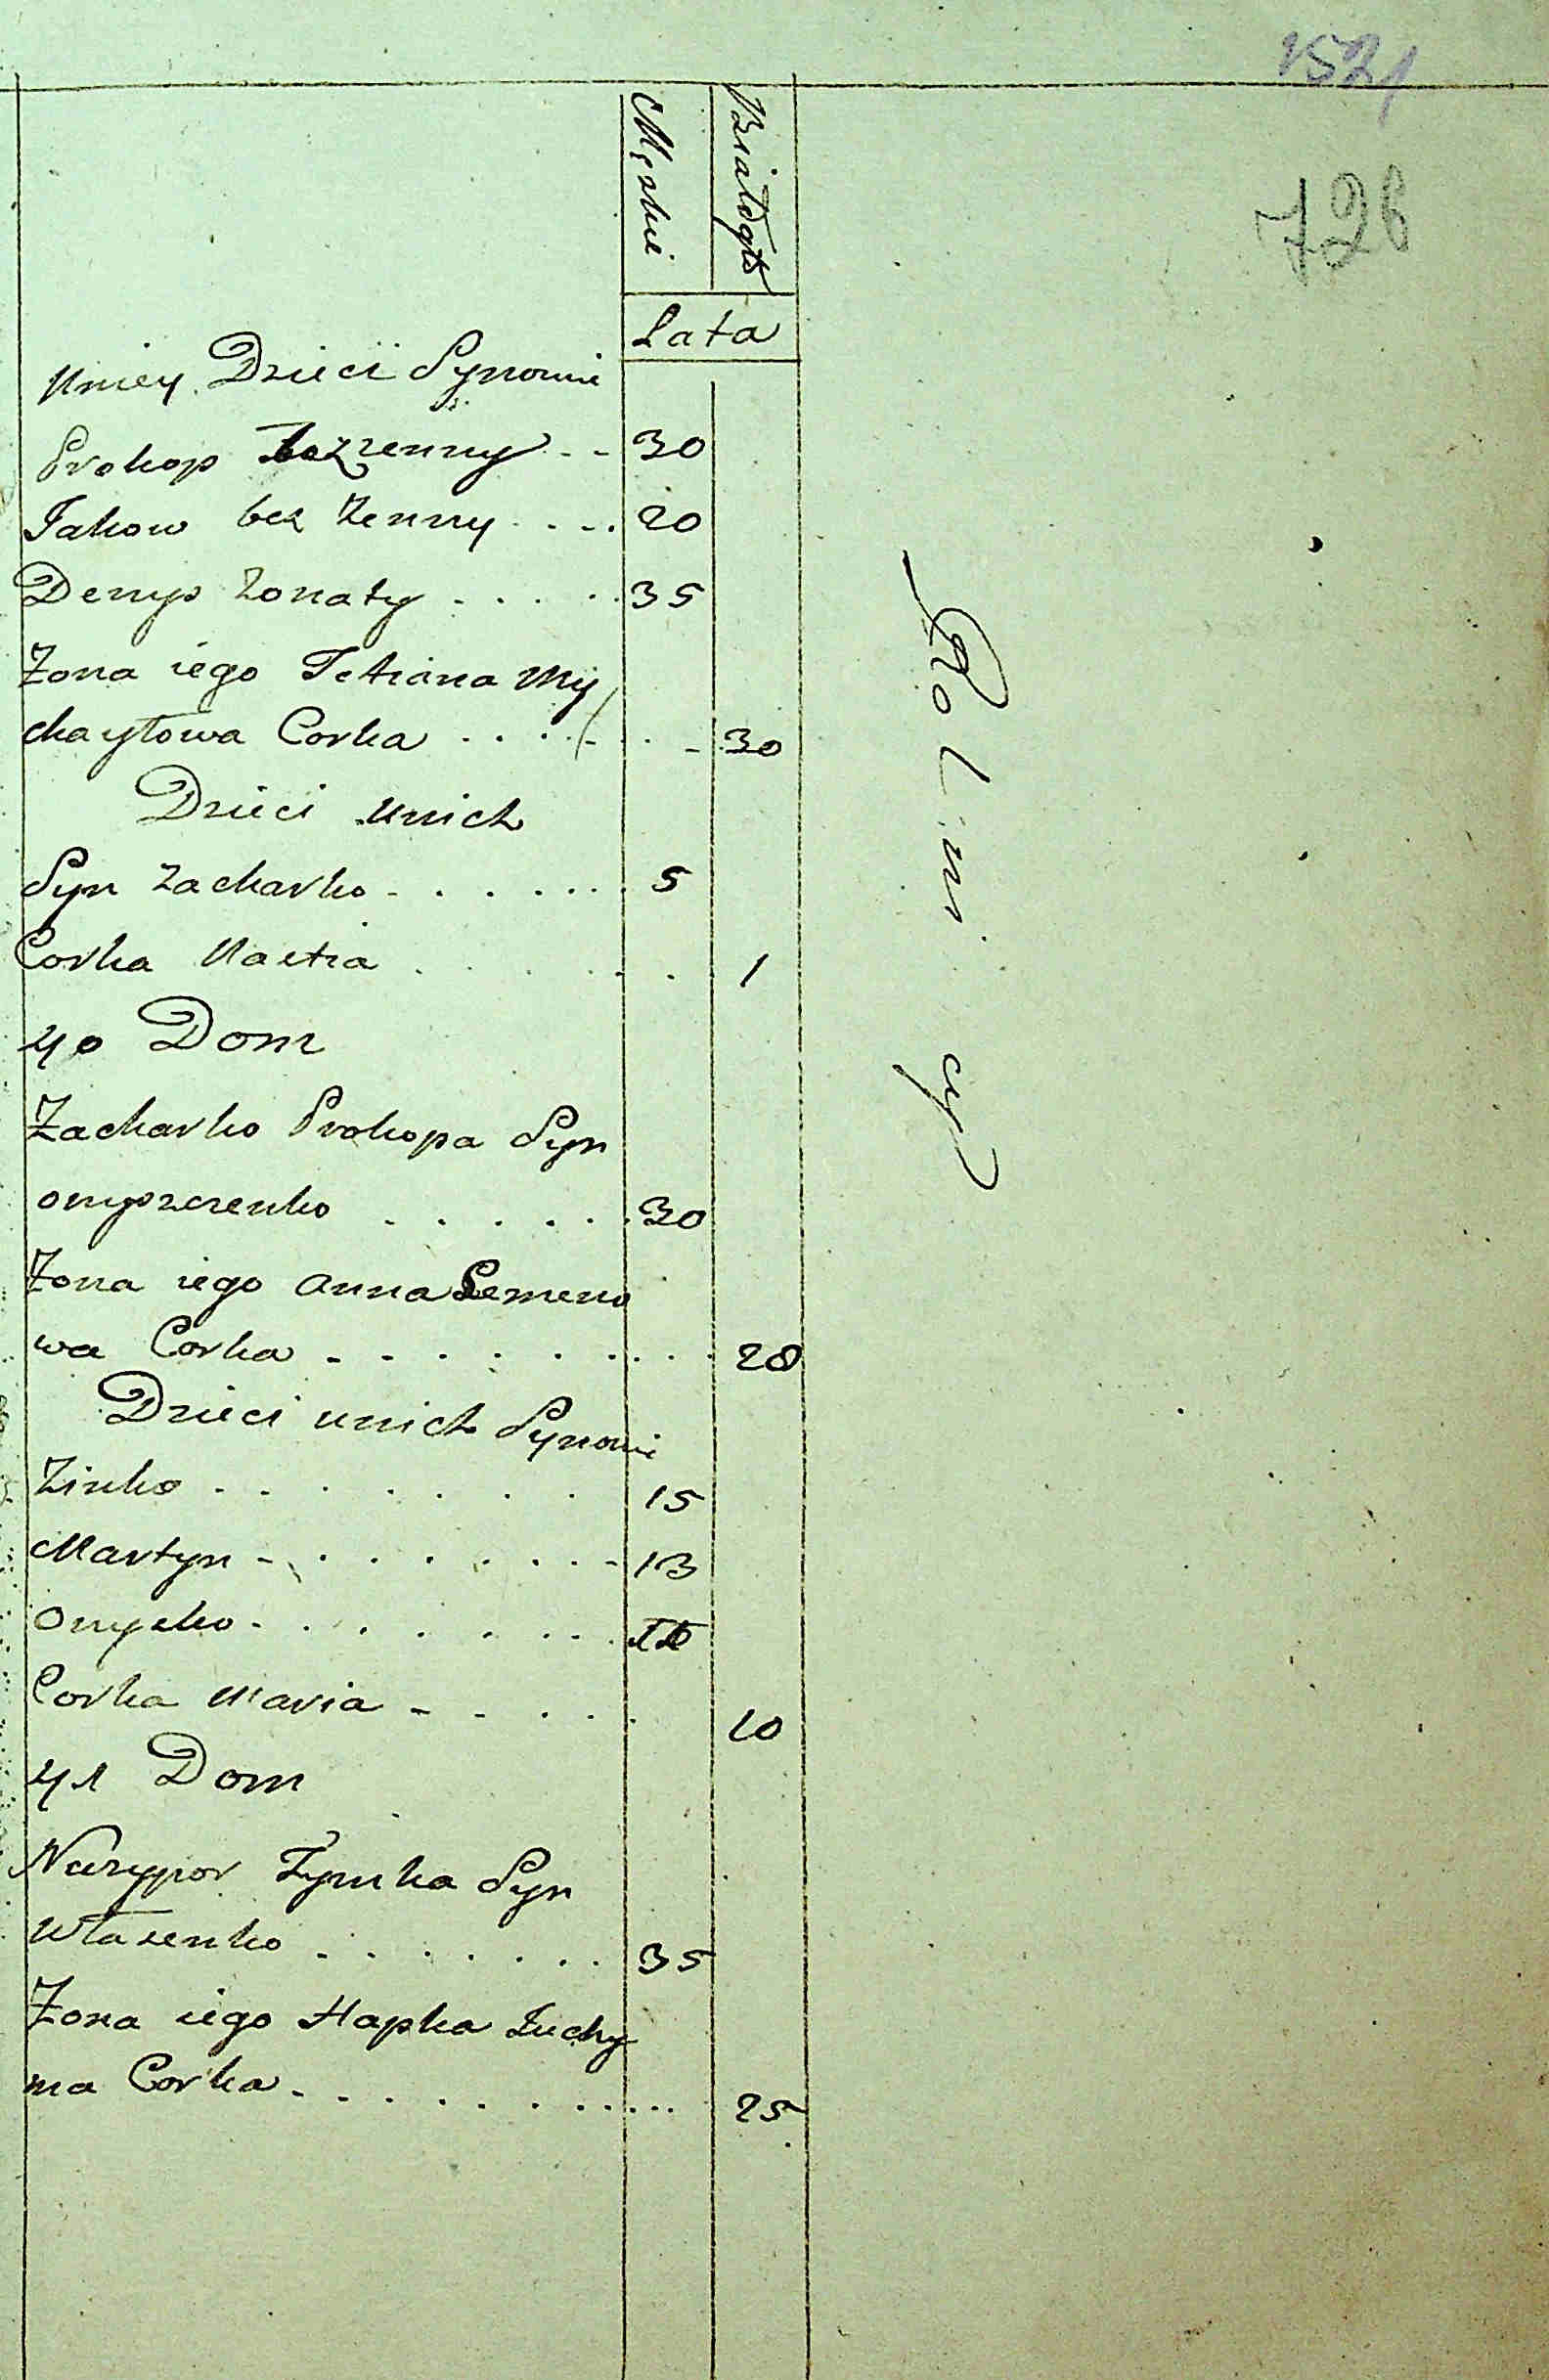 1521
726
Męskie
Białogło
Lata
Uniey Dzieci Synowie
Prokop bezzenny - - 30
Jakow bez żenny - - - . 20
Denys żonaty - . . . . 35
Żona iego Tetiana My
chayłowa Corka . . . . - . - 30
Dzieci unich
Syn Zacharko - . . . . . . 5
Corka Nastia . . . . . . 1
40 Dom
Zacharko Prokopa Syn
onyszczenko . . . . . . 30
Żona iego anna Semeno
wa Corka - - - . . . . . . . 28
Dzieci unich Synowie
Zinko - . . . . . . . 15
Martyn - . . . . . . - 13
Onyszko - . . . . . . . .
Corka Maria - - . . . 10
41 Dom
Neczypor Tymka Syn
Własenko . . . . . . . 35
Żona iego Hapka Juchy
ma Corka - . . . . . . . . . . 25
Rolniicy